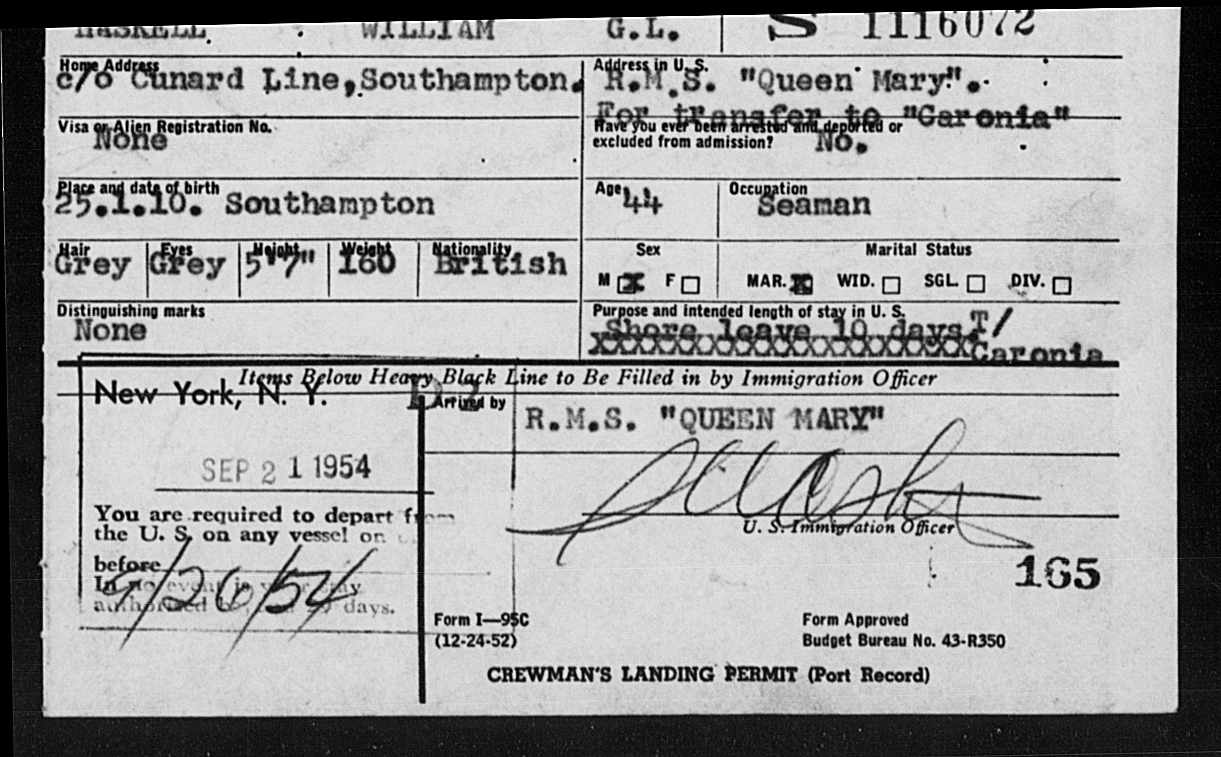 HASKELL. WILLIAM G.L. S 1116072
Home Address
c/o Cunard Line, Southampton.
Address in U. S.
R.M.S. "Queen Mary".
For transfer to "Caronia"
Visa or Alien Registration No.
None
Have you ever been arrested and deported or
excluded from admission? No.
Place and date of birth
25.1.10. Southampton
Age 44
Occupation
Seaman
Hair Eyes Height Weight Nationality
Grey Grey 5'7" 160 British
Sex
M X F
Marital Status
MAR. X WID. SGL. DIV.
Distinguishing marks
None
Purpose and intended length of stay in U. S.
Shore leave 10 days T/
XXXXXXXXXXXXXXXXXXXXXX Caronia
Items Below Heavy Black Line to Be Filled in by Immigration Officer
New York, N. Y.
SEP 21 1954
You are required to depart from
the U. S. on any vessel on
before
9/26/54
In no event
days.
Arrived by
R.M.S. "QUEEN MARY"
U. S. Immigration Officer
165
Form I—95C
(12-24-52)
Form Approved
Budget Bureau No. 43-R350
CREWMAN'S LANDING PERMIT (Port Record)